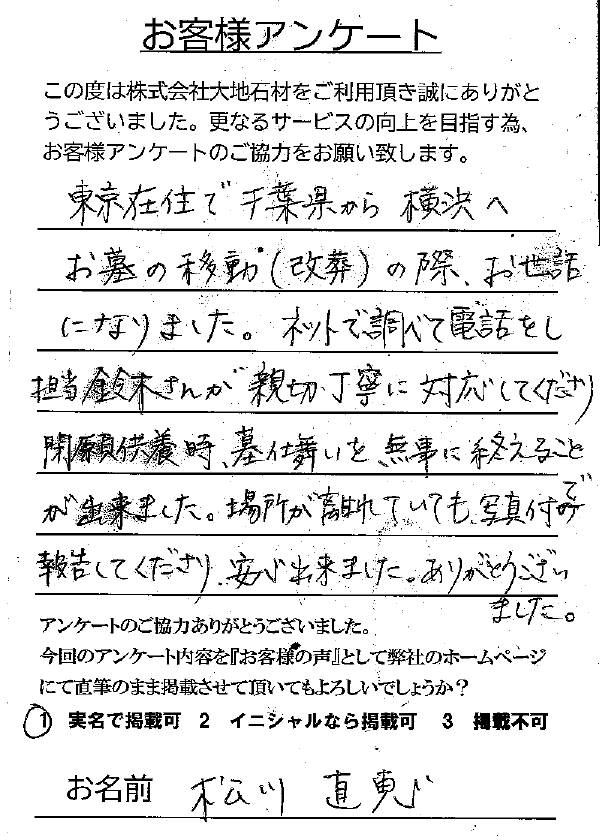 お客様アンケート
この度は株式会社大地石材をご利用頂き誠にありがと
うございました。更なるサービスの向上を目指す為、
お客様アンケートのご協力をお願い致します。
東京在住で千葉県から横浜へ
お墓の移動(改葬)の際、お世話
になりました。ネットで調べて電話をし
担当鈴木さんが親切丁寧に対応してくださり
閉願供養時、墓仕舞いを無事に終えること
が出来ました。場所が離れていても、写真付で
報告してくださり、安心出来ました。ありがとうござい
ました。
アンケートのご協力ありがとうございました。
今回のアンケート内容を『お客様の声』として弊社のホームページ
にて直筆のまま掲載させて頂いてもよろしいでしょうか?
1 実名で掲載可 2 イニシャルなら掲載可 3 掲載不可
お名前 松川 直恵